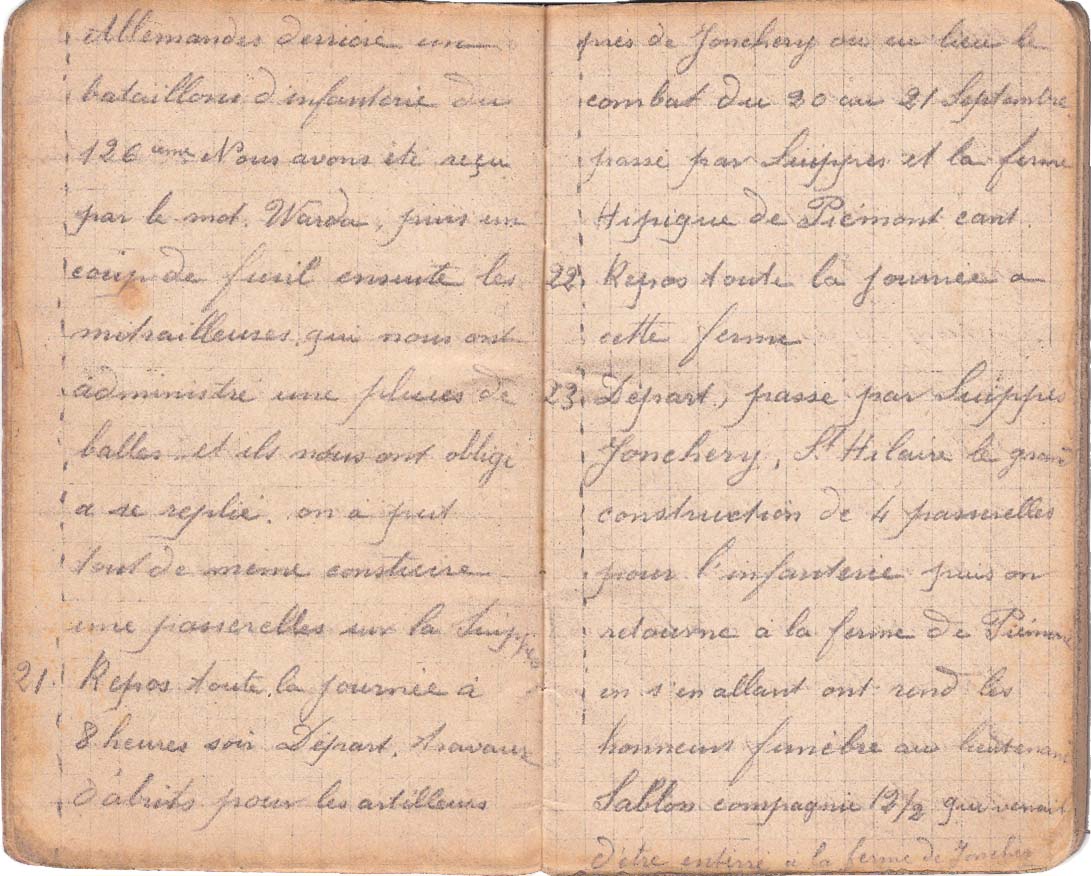 Allemandes derriere un
bataillons d'infanterie du
126 ieme. Nous avons été reçu
par le mot. Warda, puis un
coup de fusil ensuite les
mitrailleuses, qui nous ont
administré une pluies de
balles et ils nous ont obligé
a se replié. on a put
tout de meme constuire
une passerelles sur la Suippes
21. Repos toute la journée à
8 heures soir Départ, travaux
d'abrits pour les artilleurs
près de Jonchery ou eu lieu le
combat du 20 au 21 Septembre
passé par Suippes et la ferme
Hipique de Piémont cant.
22. Repos toute la journée a
cette ferme
23. Départ, passé par Suippes
Jonchery, St Hilaire le grand
construction de 4 passerelles
pour l'infanterie puis on
retourne à la ferme de Piémont
en s'en allant ont rend les
honneurs funèbre au lieutenant
Sablon compagnie 12/2 qui venait
d'être enterré a la ferme de Jonchery